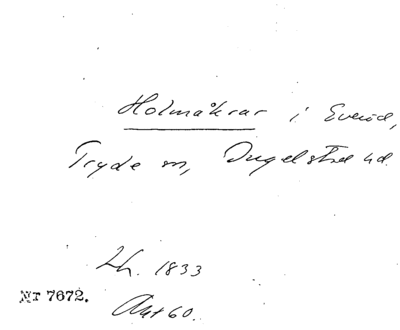 Holmåkrar i Everöd,
Tryde sn, Ingelstad hd.
Lh. 1833
Nr 7672.
Akt 60.